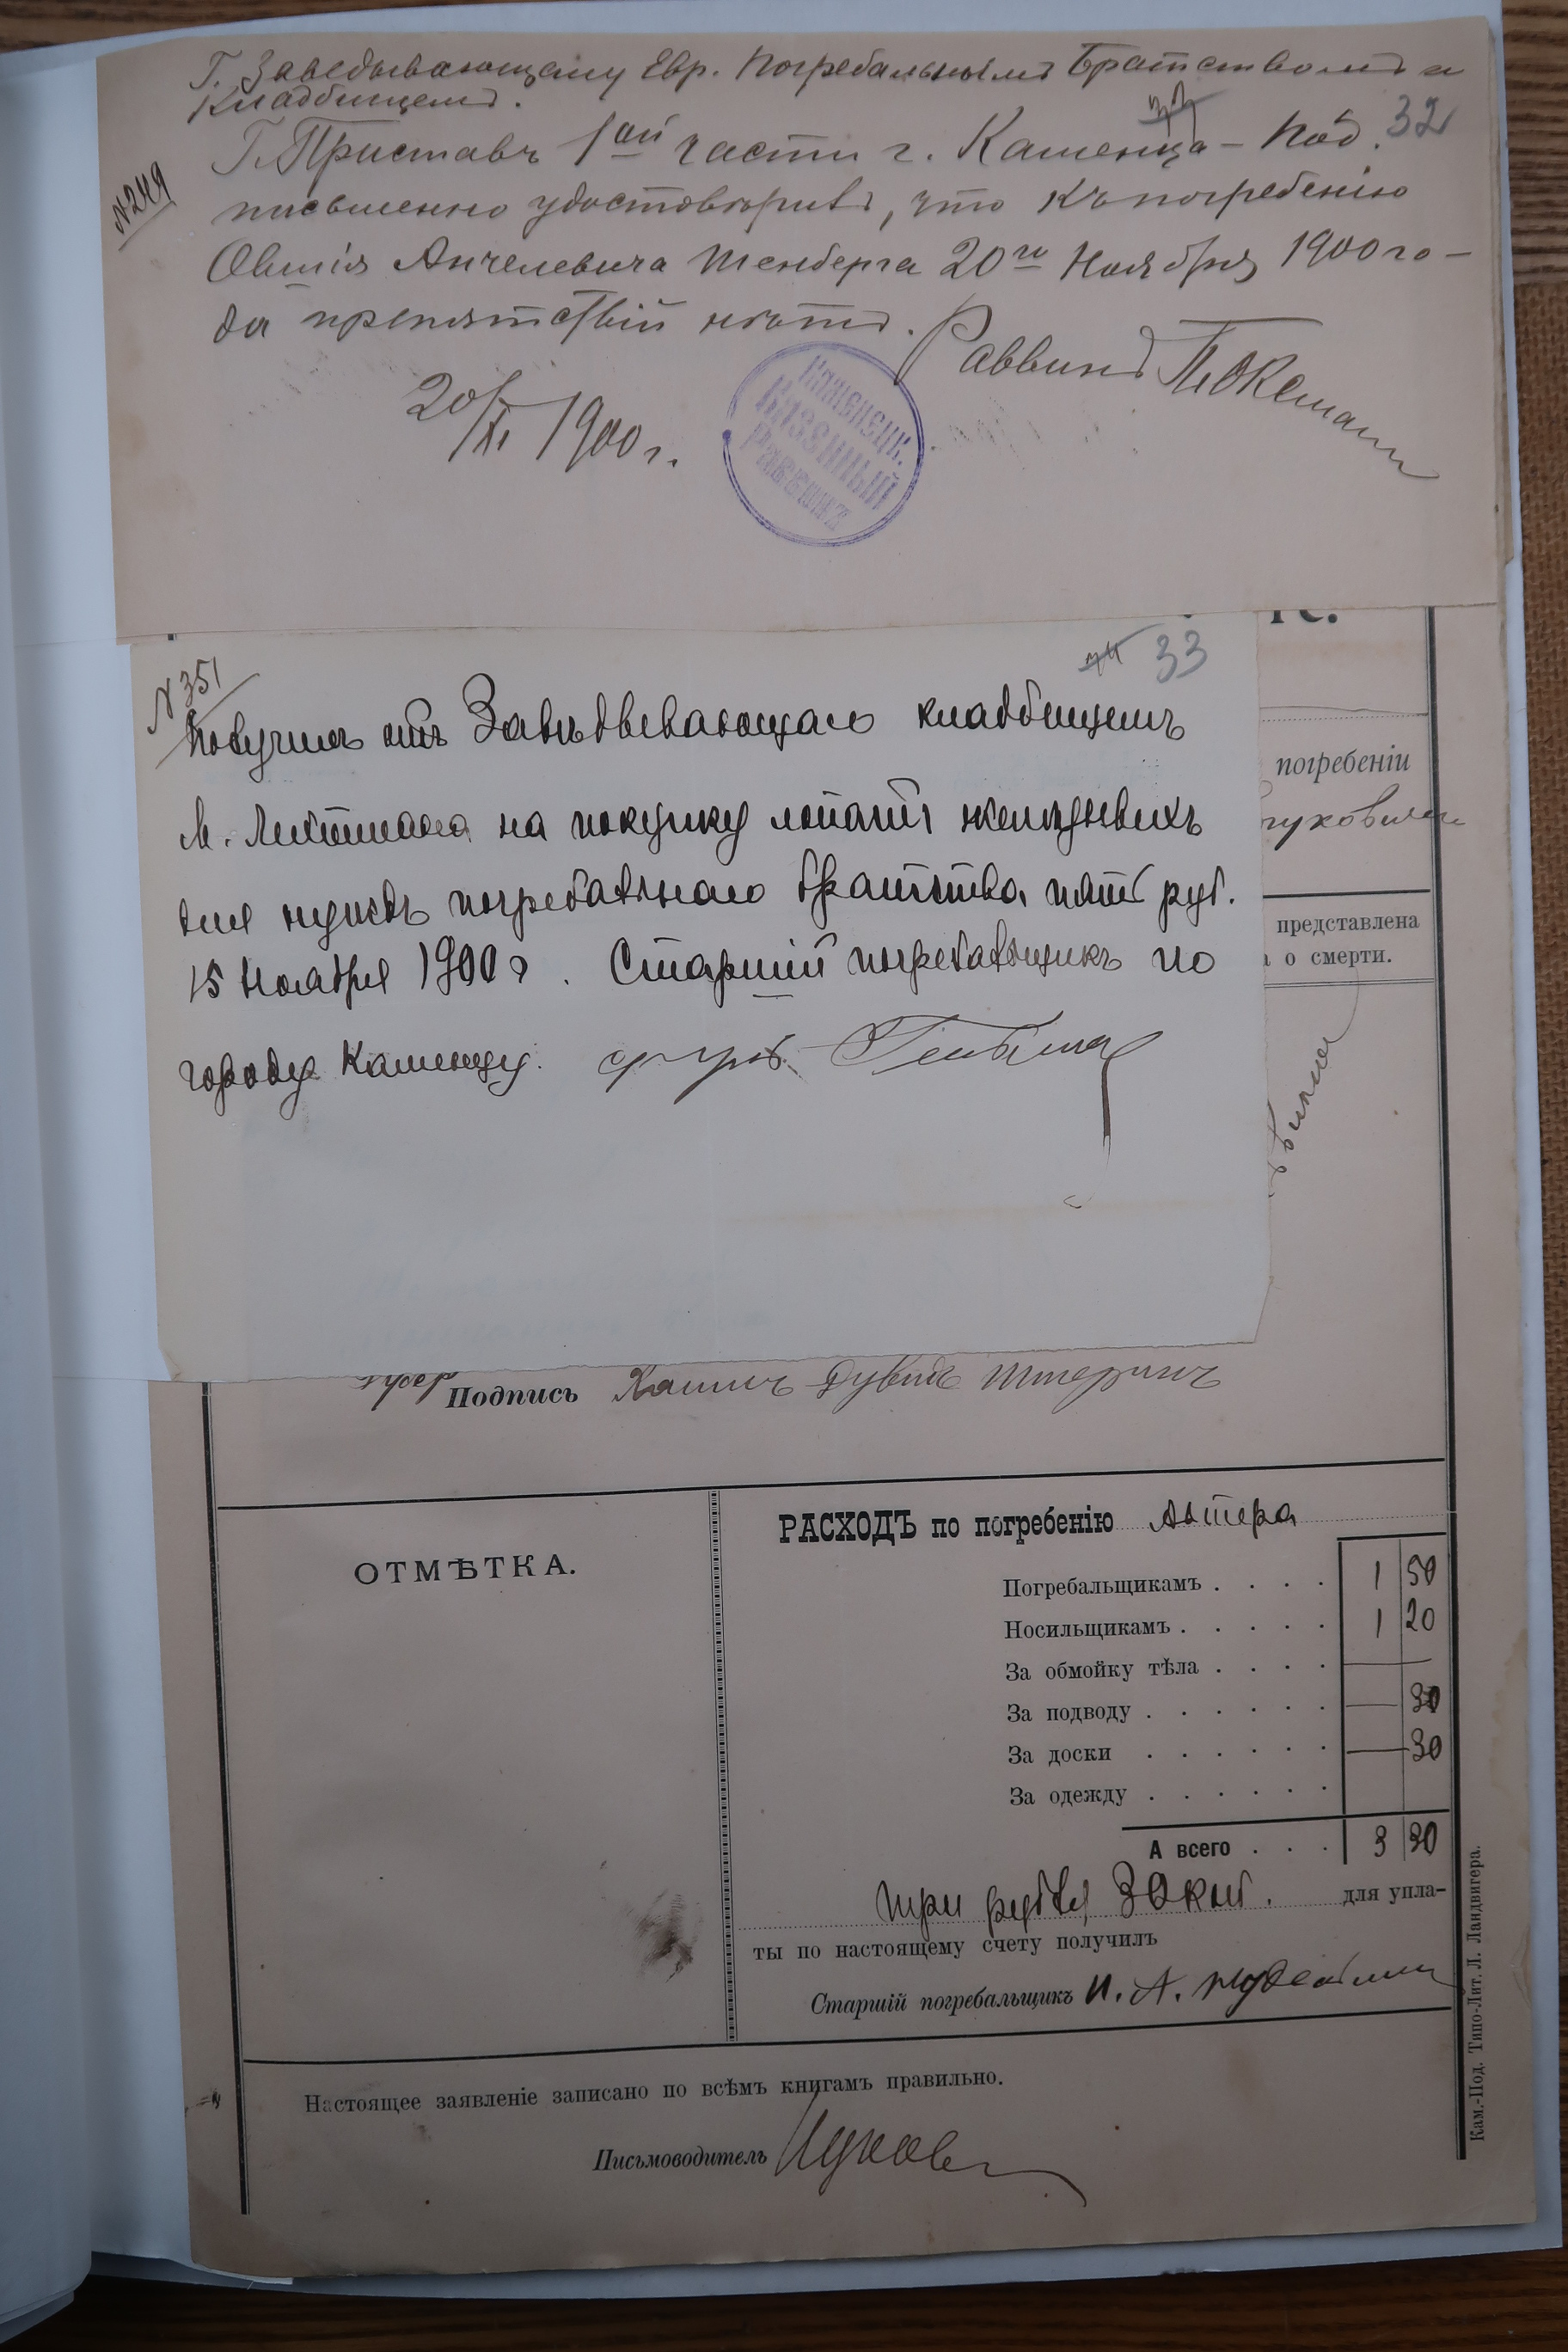 Г. Заведывающему Евр. Погребальнымъ Братствомъ и
Кладбищемъ.
32
№249
Г. Приставъ 1ой части г. Каменца-Под.
письменно удостовѣрилъ, что къ погребенію
Овшія Анчелевича Тенберга 20го Ноября 1900 го-
да препятствій нѣтъ.
Раввинъ
20/XI 1900 г.
КАМЕНЕЦК.
КАЗЕННЫЙ
РАВВИНЪ
33
№351
Получилъ отъ Завѣдывающаго кладбищемъ
М. Лихтмана на покупку лопатъ желѣзныхъ
для нуждъ погребальнаго братства пять руб.
15 Ноября 1900 г. Старшій погребальщикъ по
городу Каменцу.
погребеніи
представлена
о смерти.
Подпись Дувидъ
ОТМѢТКА.
РАСХОДЪ по погребенію Альтера
Погребальщикамъ . . . . 1 50
Носильщикамъ . . . . . 1 20
За обмойку тѣла . . . . —
За подводу . . . . . . — 30
За доски . . . . . . — 30
За одежду . . . . . .
А всего . . . 3 30
три рубля 30 коп. для упла-
ты по настоящему счету получилъ
Старшій погребальщикъ И. А.
Настоящее заявленіе записано по всѣмъ книгамъ правильно.
Письмоводитель
Кам.-Под. Типо-Лит. Л. Ландвигера.